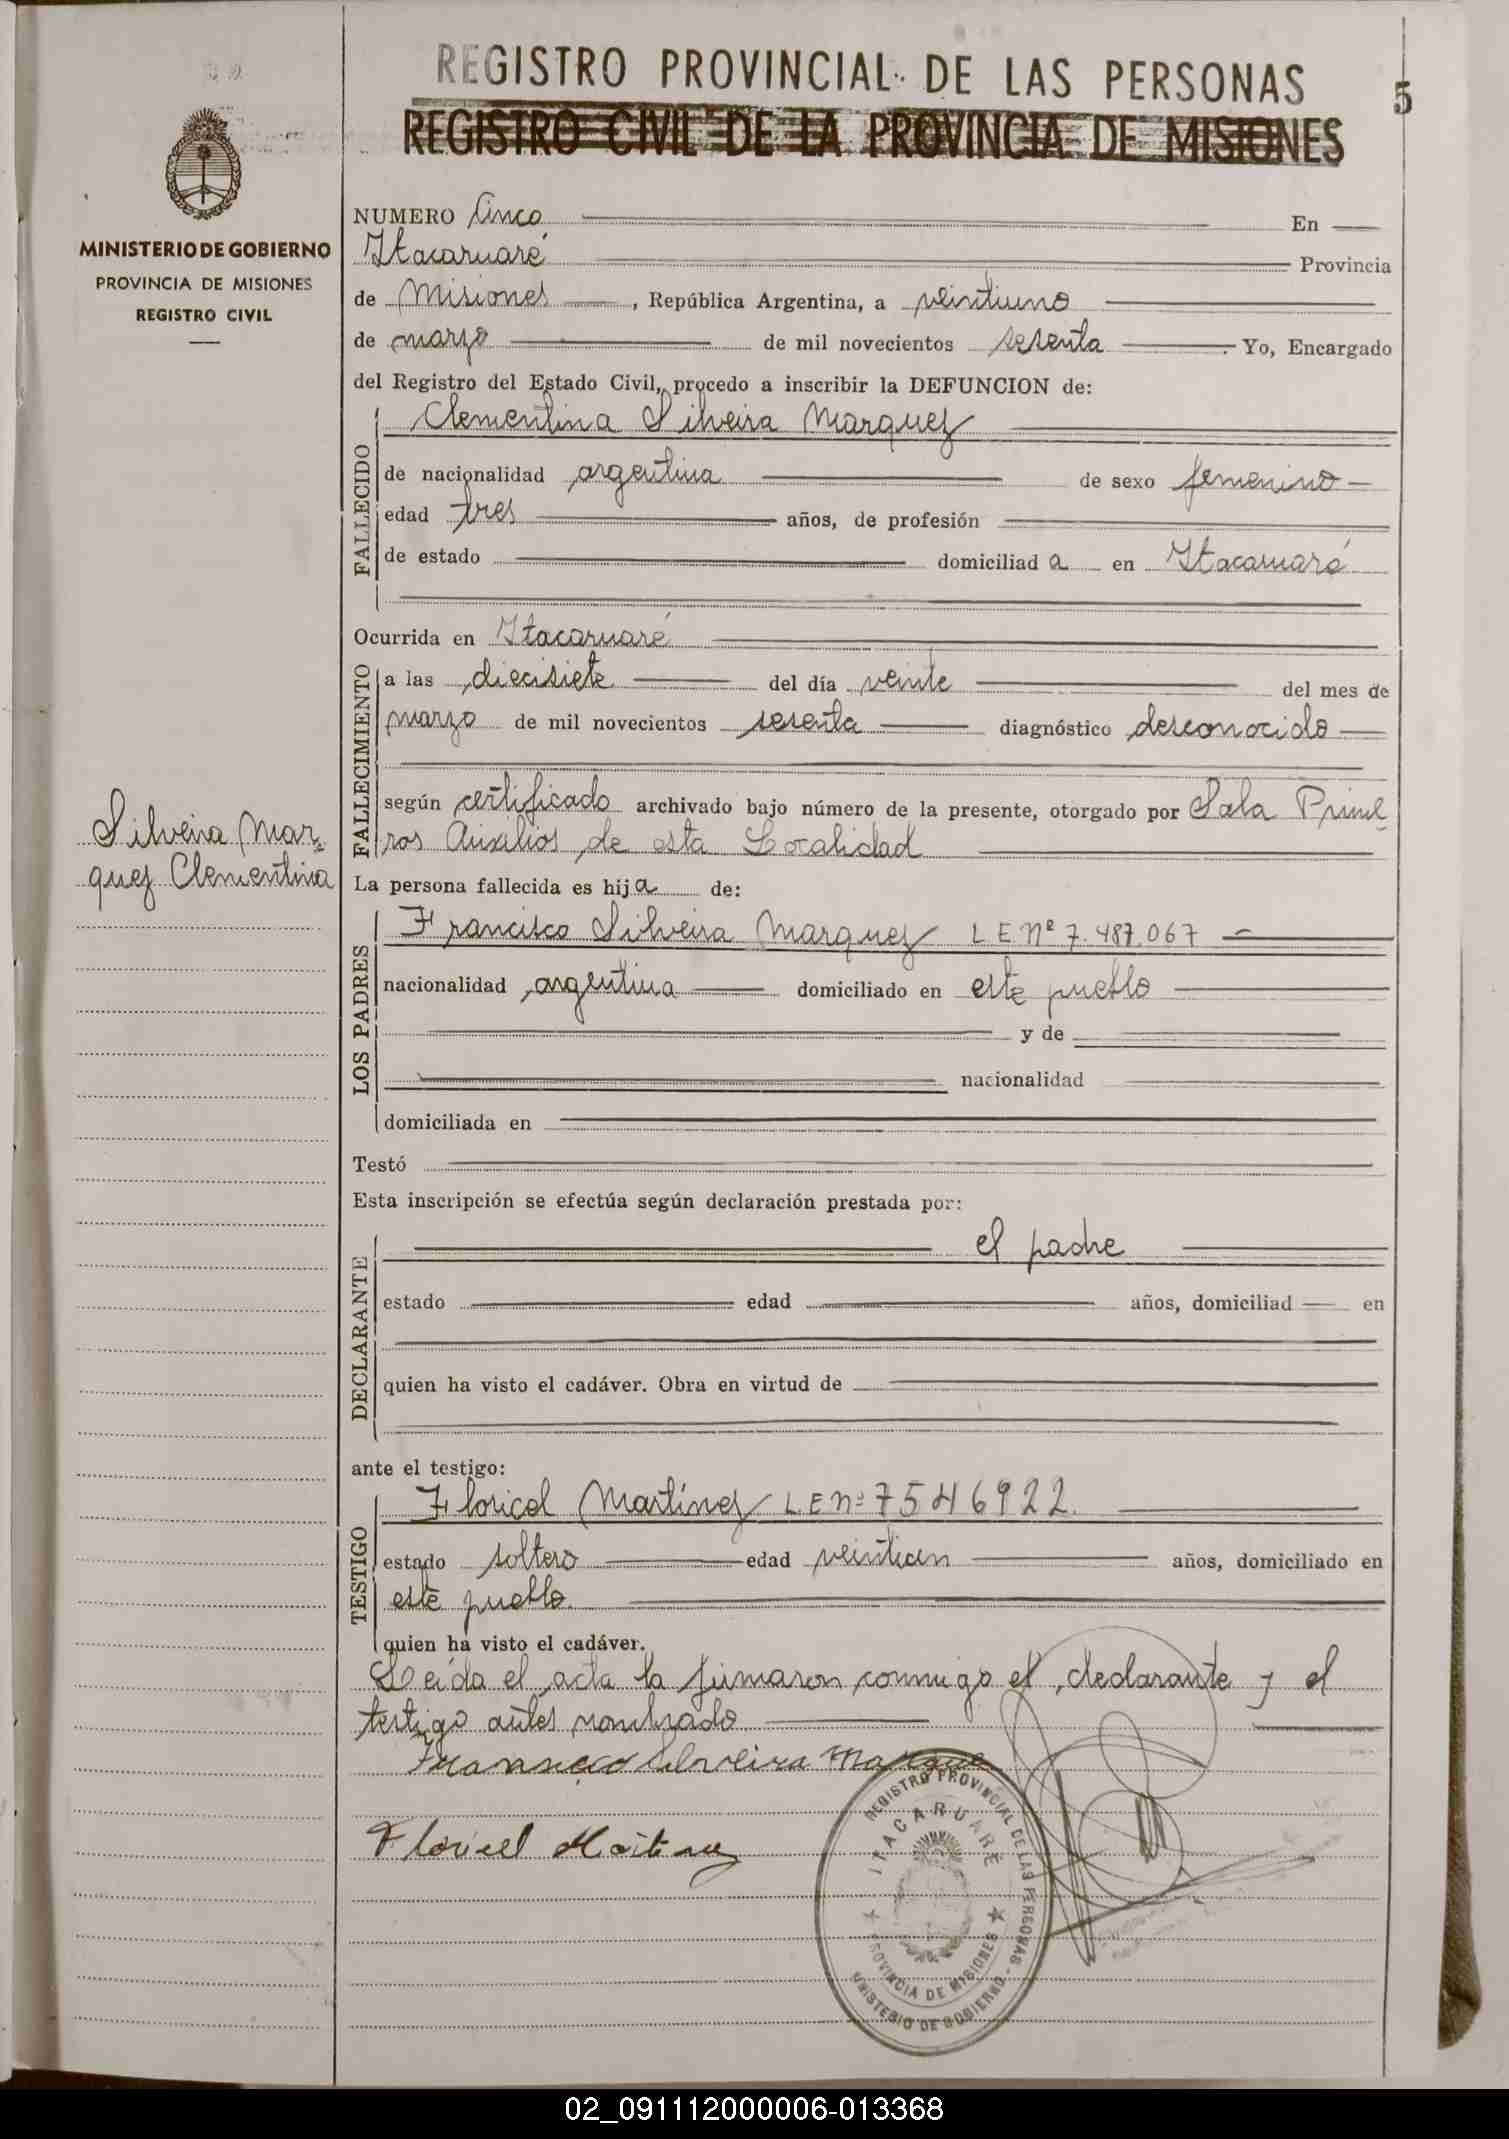 REGISTRO PROVINCIAL DE LAS PERSONAS
5
REGISTRO CIVIL DE LA PROVINCIA DE MISIONES
MINISTERIO DE GOBIERNO
PROVINCIA DE MISIONES
REGISTRO CIVIL
NUMERO Cinco En
Itacaruaré Provincia
de Misiones, República Argentina, a veintiuno
de marzo de mil novecientos sesenta. Yo, Encargado
del Registro del Estado Civil, procedo a inscribir la DEFUNCION de:
FALLECIDO
Clementina Silveira Marquez
de nacionalidad argentina de sexo femenino
edad tres años, de profesión
de estado domiciliada en Itacaruaré
Ocurrida en Itacaruaré
FALLECIMIENTO
a las diecisiete del día veinte del mes de
marzo de mil novecientos sesenta diagnóstico desconocido
según certificado archivado bajo número de la presente, otorgado por Sala Prime
ros Auxilios de esta Localidad
Silveira Mar-
quez Clementina
La persona fallecida es hija de:
LOS PADRES
Francisco Silveira Marquez L E Nº 7.487.067
nacionalidad argentina domiciliado en este pueblo
y de
nacionalidad
domiciliada en
Testó
Esta inscripción se efectúa según declaración prestada por:
DECLARANTE
el padre
estado edad años, domiciliad en
quien ha visto el cadáver. Obra en virtud de
ante el testigo:
TESTIGO
Floricel Martínez L E Nº 7546922.
estado soltero edad años, domiciliado en
este pueblo.
quien ha visto el cadáver.
Leída el acta la firmaron conmigo el declarante y el
testigo antes nombrado
Silveira Marque
Floricel
REGISTRO PROVINCIAL DE LAS PERSONAS - MINISTERIO DE GOBIERNO
ITACARUARÉ
PROVINCIA DE MISIONES
02_091112000006-013368